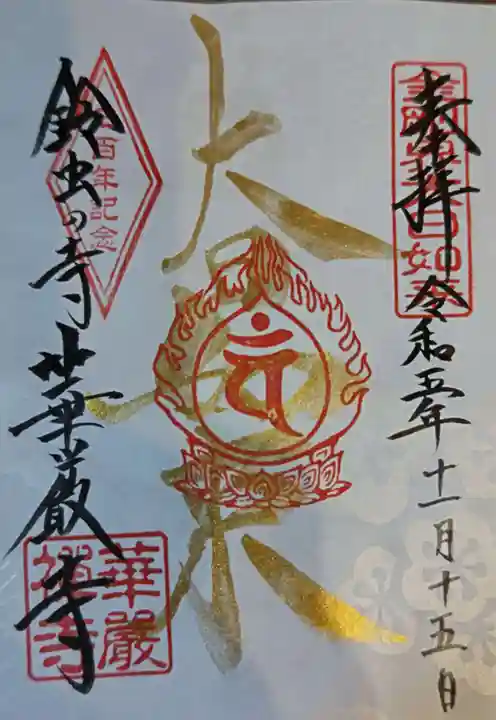 奉拝 令和五年十一月十五日
大日如来
鈴虫の寺 華厳寺
百年記念
華嚴
禪寺